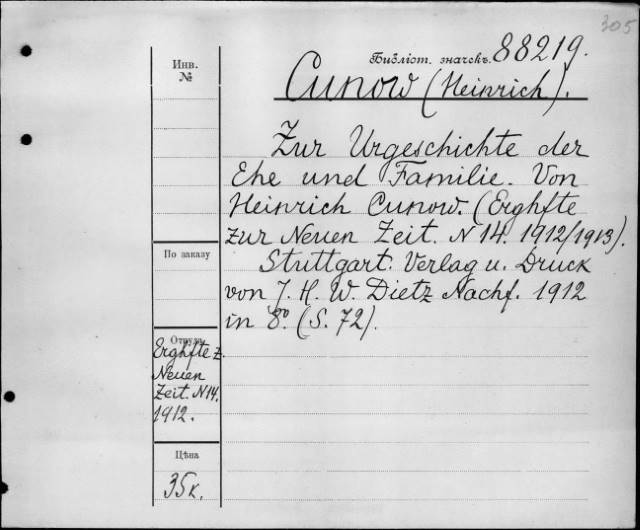 305
Библіот. значекъ 88219.
Инв.
№
Cunow (Heinrich).
Zur Urgeschichte der
Ehe und Familie. Von
Heinrich Cunow. (Erghfte
zur Neuen Zeit. N 14. 1912/1913).
Stuttgart. Verlag u. Druck
von J. H. W. Dietz Nachf. 1912
in 8º. (S. 72).
По заказу
Откуда
Erghfte z.
Neuen
Zeit. N 14.
1912.
Цѣна
35к.